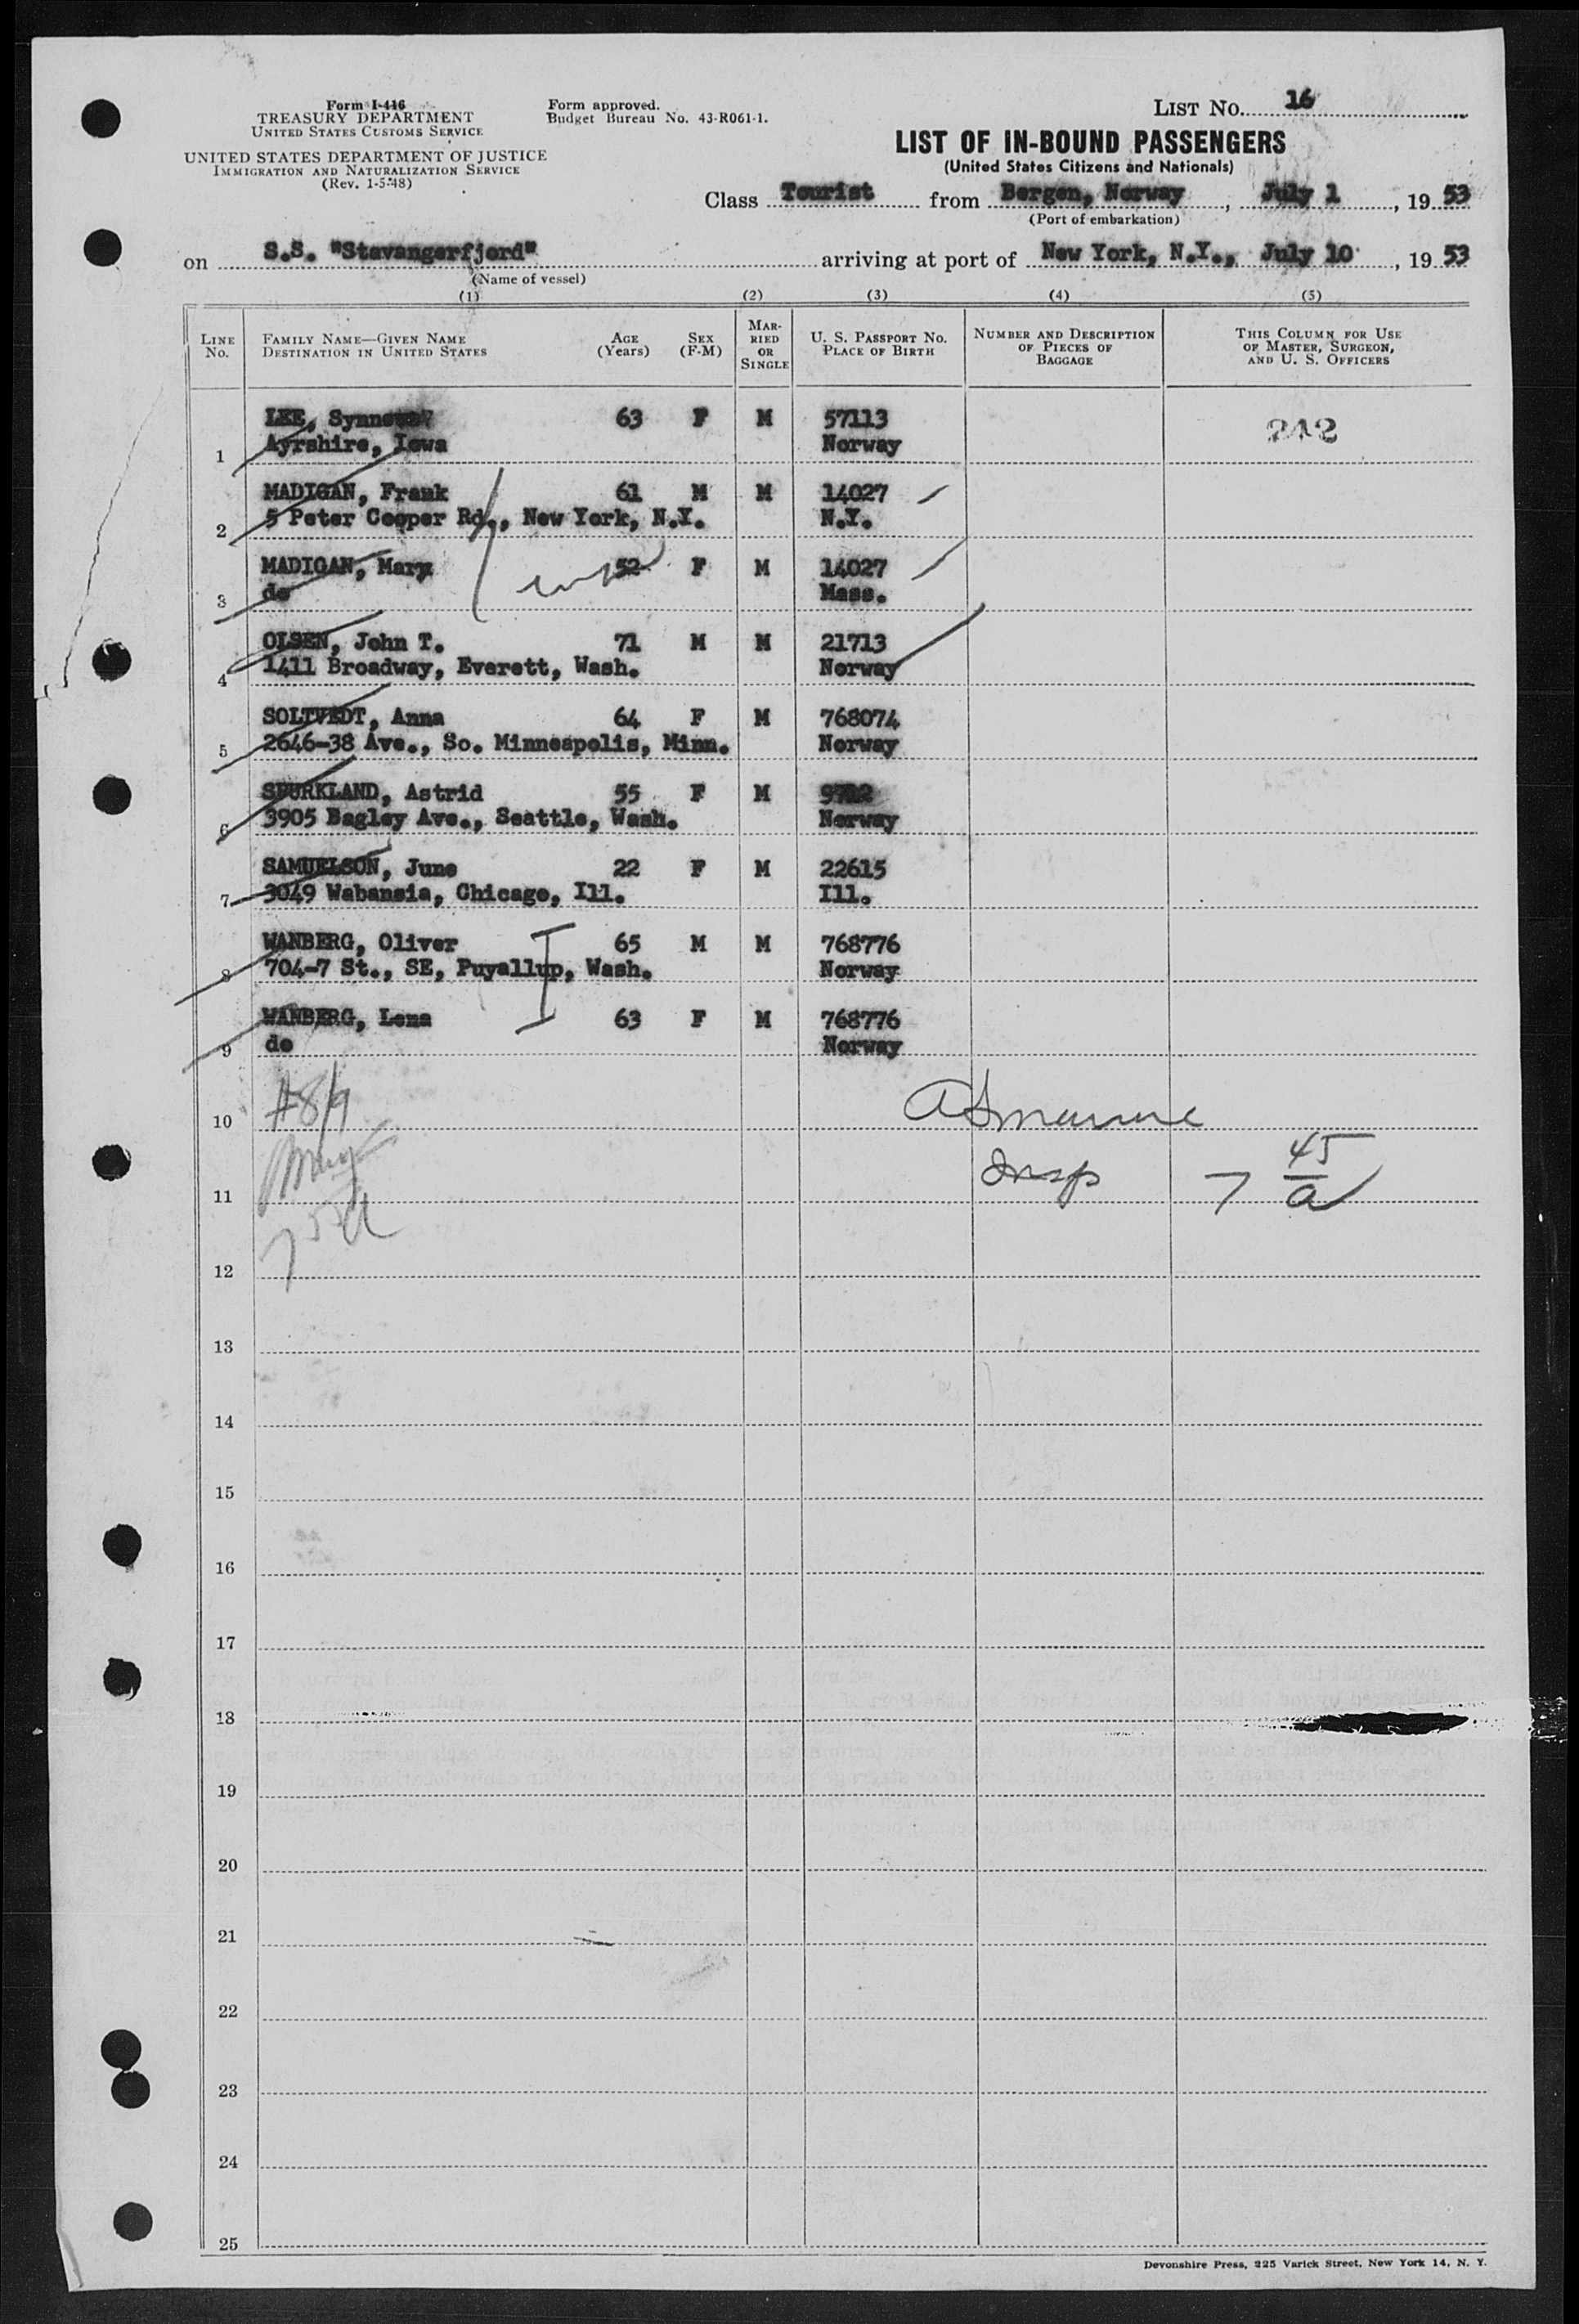 Form I-416
TREASURY DEPARTMENT
UNITED STATES CUSTOMS SERVICE
UNITED STATES DEPARTMENT OF JUSTICE
IMMIGRATION AND NATURALIZATION SERVICE
(Rev. 1-5-48)
Form approved.
Budget Bureau No. 43-R061-1.
LIST No. 16
LIST OF IN-BOUND PASSENGERS
(United States Citizens and Nationals)
Class Tourist from Bergen, Norway, July 1, 19 53
(Port of embarkation)
on S.S. "Stavangerfjord" arriving at port of New York, N.Y., July 10, 19 53
(Name of vessel)
(1) (2) (3) (4) (5)
LINE No. FAMILY NAME—GIVEN NAME DESTINATION IN UNITED STATES AGE (Years) SEX (F-M) MARRIED OR SINGLE U. S. PASSPORT No. PLACE OF BIRTH NUMBER AND DESCRIPTION OF PIECES OF BAGGAGE THIS COLUMN FOR USE OF MASTER, SURGEON, AND U. S. OFFICERS
LEE, 63 F M 57113 242
1 Ayrshire, Iowa Norway
MADIGAN, Frank 61 M M 14027
2 5 Peter Cooper Rd., New York, N.Y. N.Y.
MADIGAN, Mary 52 F M 14027
3 do Mass.
OLSEN, John T. 71 M M 21713
4 1411 Broadway, Everett, Wash. Norway
SOLTVEDT, Anna 64 F M 768074
5 2646-38 Ave., So. Minneapolis, Minn. Norway
SPURKLAND, Astrid 55 F M
6 3905 Bagley Ave., Seattle, Wash. Norway
SAMUELSON, June 22 F M 22615
7 3049 Wabansia, Chicago, Ill. Ill.
WANBERG, Oliver 65 M M 768776
8 704-7 St., SE, Puyallup, Wash. Norway
WANBERG, Lena 63 F M 768776
9 do Norway
#8/9
10
Insp 7 45/a
11
12
13
14
15
16
17
18
19
20
21
22
23
24
25
Devonshire Press, 225 Varick Street, New York 14, N. Y.